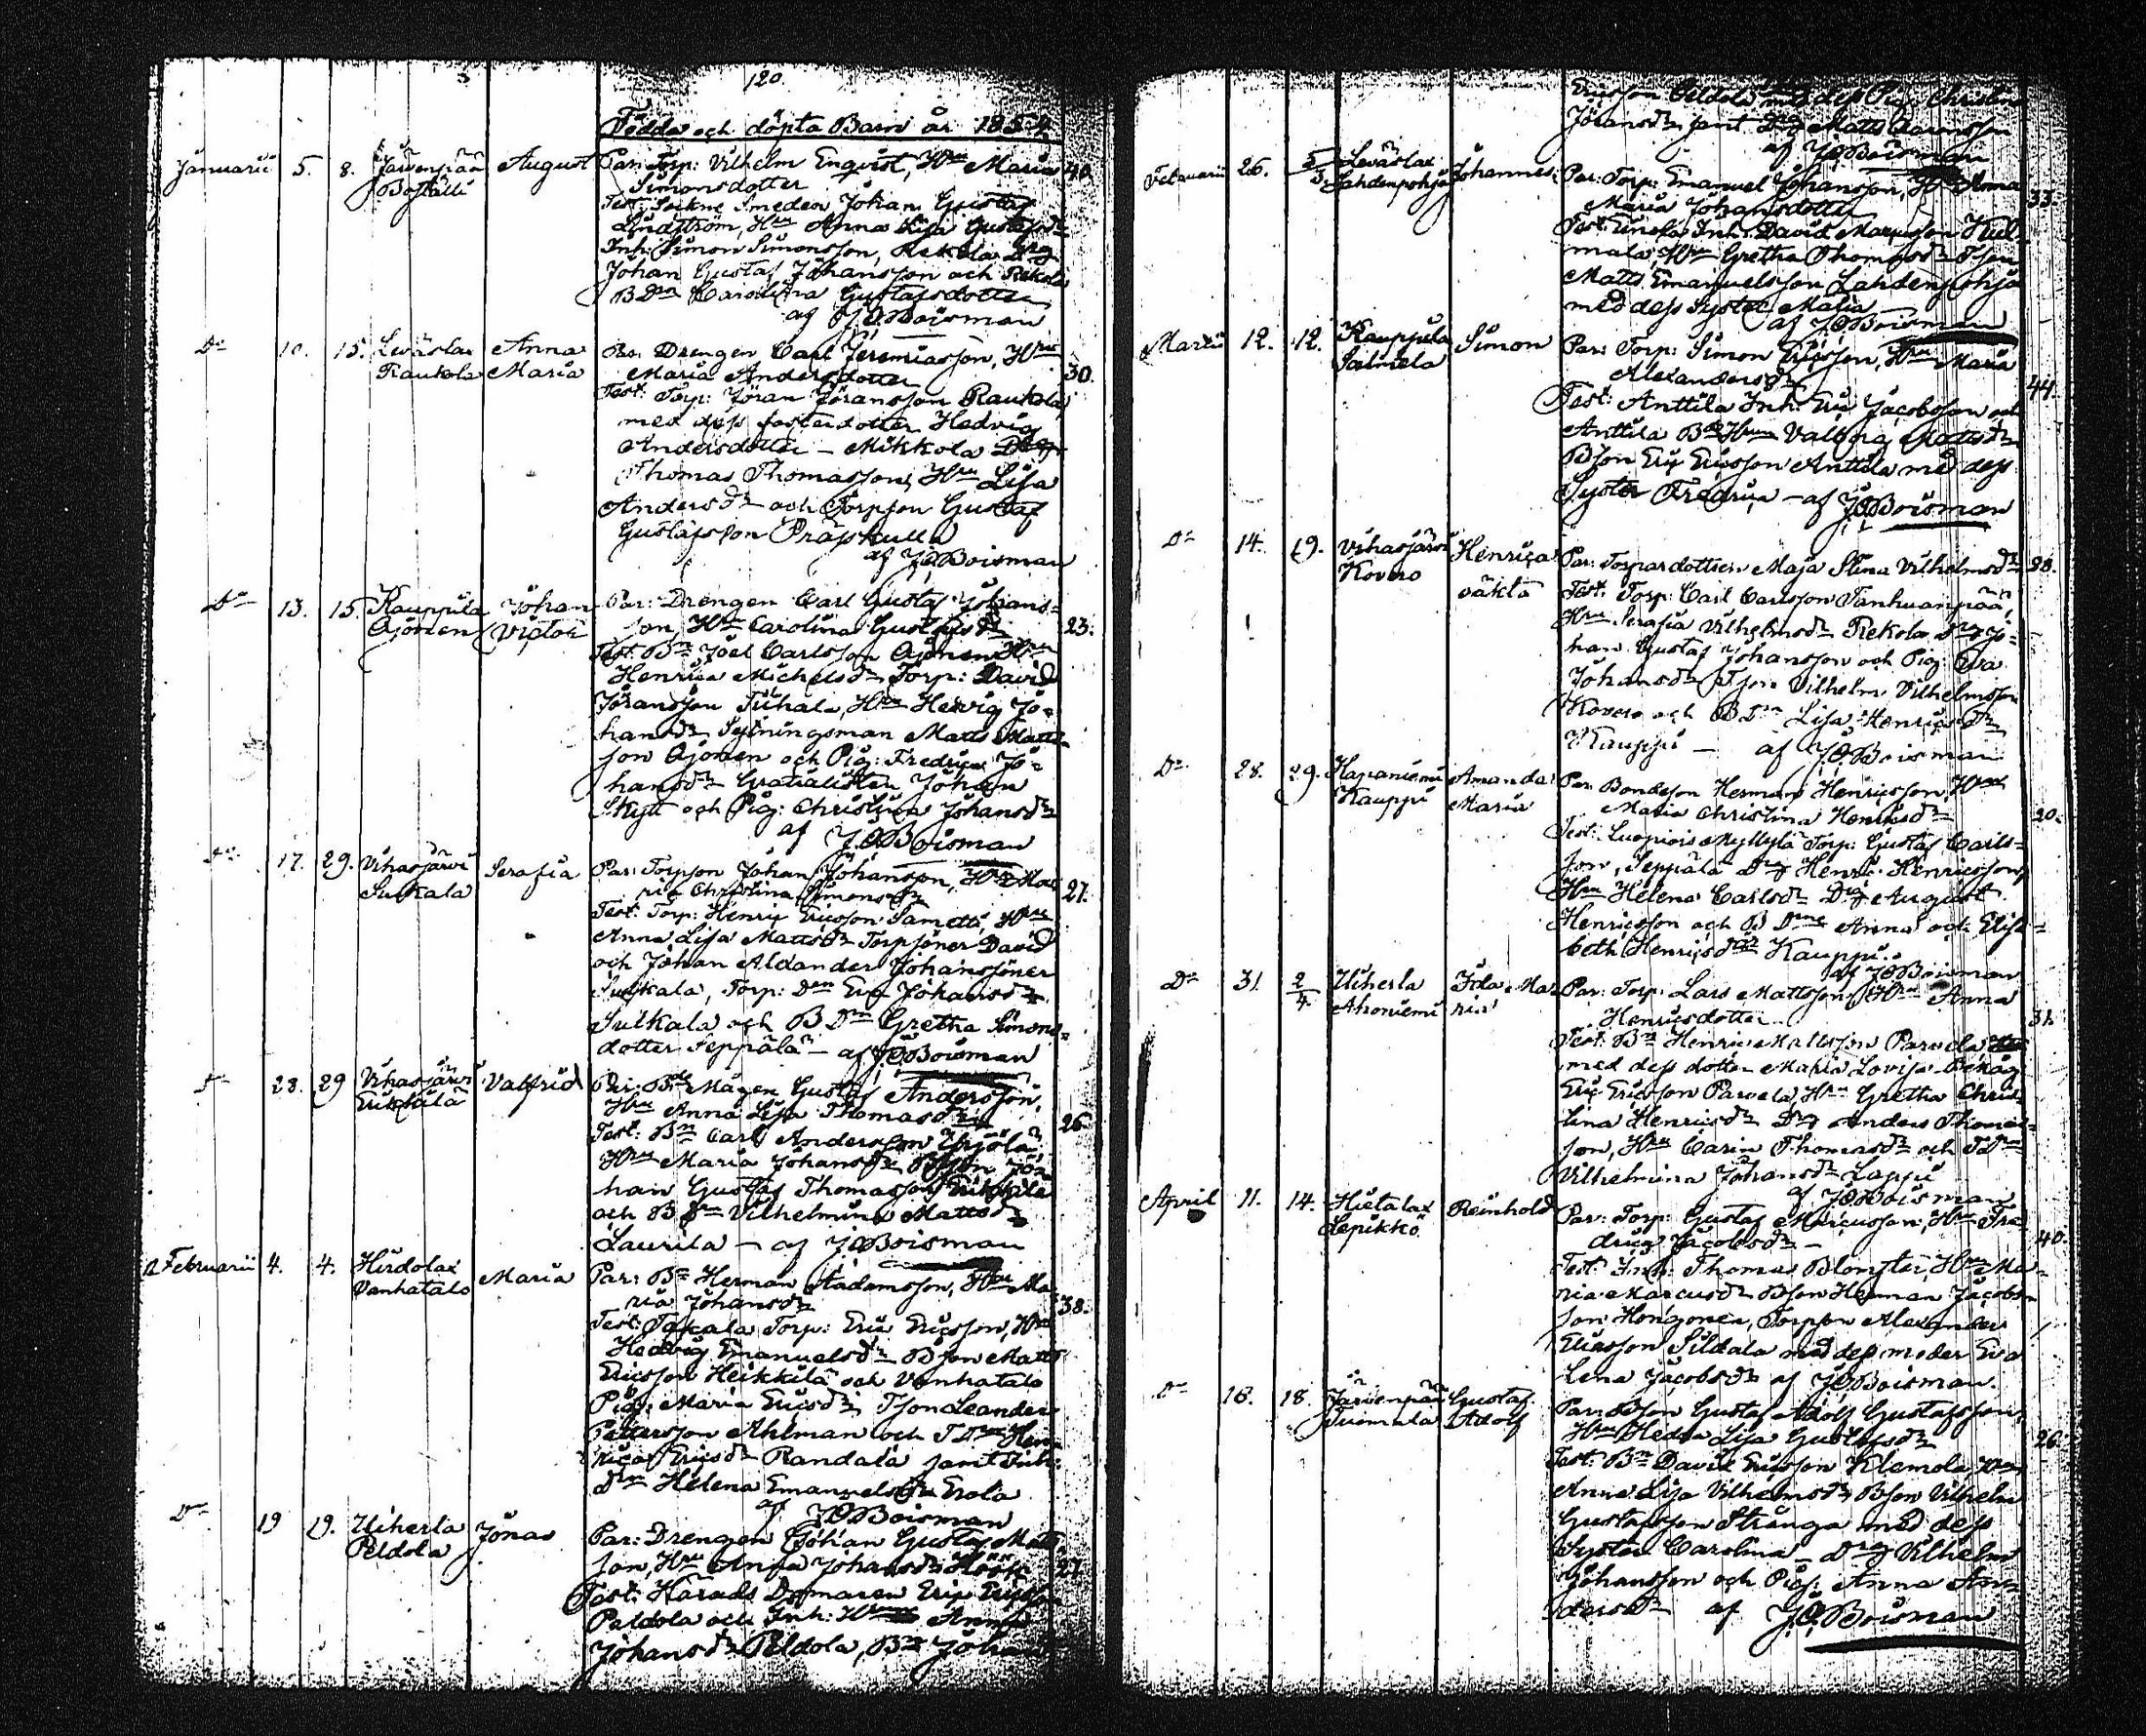 120.
Födda och döpta Barn år 1854
Januarii 5. 8. Järvenpää August Par: Torp: Vilhelm Enqvist, Hru Maria 40.
Boställe Simonsdotter
Test: Sockne Smeden Johan Gustaf
Lindström, Hru Anna Lisa Gustafsdr
Inh: Simon Simonsson, Rekola Drg
Johan Gustaf Johansson och Rekola
BDn Carolina Gustafsdotter
af J.O.Boisman
Do 10. 15. Leväslax Anna Par: Drengen Carl Jeremiasson, Hru
Raukola Maria Maria Andersdotter 30.
Test: Torp: Jöran Jöransson Raukola
med dess fosterdotter Hedvig
Andersdotter – Mikkola Drg
Thomas Thomasson, Hru Lisa
Andersdr och Torpson Gustaf
Gustafsson Präskulla
af J.O.Boisman
Do 13. 15. Kauppila Johan Par: Drengen Carl Gustaf Johans=
Ojonen Victor son, Hru Carolina Gustafsdr 23.
Test: Bn Joel Carlsson Ojonen Hru
Henrica Michelsdr Torp: David
Jöransson Tuhala, Hru Hedvig Jo=
hansdr Sytningsman Matts Matts
son Ojonen och Pig: Fredrica Jo=
hansdr Gratialisten Johan
Skytt och Pig: Christina Johansdr
af J.O.Boisman
Do 17. 29. Vihasjärvi Serafia Par: Torpson Johan Johansson, Hru Ma=
Sulkala ria Christina Simonsdr 27.
Test: Torp: Henric Ericsson Sametti, Hru
Anna Lisa Mattsdr Torpsöner David
och Johan Aldander Johanssöner
Sulkala, Torp: Drn Eva Johansdr
Sulkala och BDn Gretha Simons=
dotter Seppälä – af J.O.Boisman
Do 28. 29 Vihasjärvi Valfrid Par: Bde Mågen Gustaf Andersson,
Erikkilä Hru Anna Lisa Thomasdr 26.
Test: Bn Carl Andersson Yrjölä,
Hru Maria Johansdr Bson Jo=
han Gustaf Thomasson Erikkilä
och BDn Vilhelmina Mattsdr
Laurila – af J.O.Boisman
Februarii 4. 4. Hirdolax Maria Par: Bn Herman Aadamsson, Hru Ma=
Vanhatalo ria Johansdr 38.
Test: Torp: Eric Ericsson, Hru
Hedvig Emanuelsdr Bson Matts
Ericsson Heikkilä och Vanhatalo
Pig: Maria Ericsdr Tson Leander
Pettersson Ahlman och TDn Hen=
rica Ericsdr Randala samt Inh:
Drn Helena Emanuelsdr Erola
af J.O.Boisman
Do 19 19. Uiherla Jonas Par: Drengen Johan Gustaf Matts
Peldola son, Hru Anna Johansdr Höök 27.
Test: Härads Domaren Eric Ericsson
Peldola och Inh: Hru Anna
Johansdr Peldola, Bn Johan
Ericsson Peldola med dess Pig: Christina
Jöransdr samt Drg Matts Aaronsson
af J.O.Boisman
Februarii 26. 5/3 Leväslax Johannes Par: Torp: Emanuel Johansson, Hru Anna
Lahdenpohja Maria Johansdotter 33.
Test: Inh: David Marcusson Kul=
mala, Hru Gretha Thomasdr Tson
Matts Emanuelsson Lahdenpohja
med dess Syster Maria
af J.O.Boisman
Martii 12. 12. Kauppila Simon Par: Torp: Simon Ericsson, Hru Maria
Salmela Alexandersdr 44.
Test: Anttila Inh: Eric Jacobsson och
Anttila Bde Hru Valborg Mattsdr
Bson Eric Ericsson Anttila med dess
Syster Fredrica – af J.O.Boisman
Do 14. 19. Vihasjärvi Henrica Par: Torpardottren Maja Stina Vilhelmsdr 28.
Kovero oäkta Test: Torp: Carl Carlsson Tanhuanpää,
Hru Serafia Vilhelmsdr Rekola Drg Jo=
han Gustaf Johansson och Pig: Eva
Johansdr Tson Vilhelm Vilhelmsson
Kovero och BDn Lisa Henricsdr
Kauppi – af J.O.Boisman
Do 28. 29. Hapaniemi Amanda Par: Bondeson Herman Henricsson, Hru
Kauppi Maria Maria Christina Henricsdr 20.
Test: Luopiois Myllylä Torp: Gustaf Carls=
son, Seppälä Drg Henric Henricsson,
Hru Helena Carlsdr Drg August
Henricsson och BDne Anna och Elisa=
beth Henricsdr Kauppi.
af J.O.Boisman
Do 31. 2/4 Uiherla Ida Ma= Par: Torp: Lars Mattsson, Hru Anna
Ahoniemi ria Henricsdotter 31.
Test: Bn Henric Mattsson Parvela
med dess dotter Maria Lovisa Bmåg
Eric Ericsson Parvela, Hru Gretha Chris=
tina Henricsdr Drg Anders Thomas=
son, Hru Carin Thomasdr och TDn
Vilhelmina Johansdr Lappi
af J.O.Boisman
April 11. 14. Hietalax Reinhold Par: Torp: Gustaf Marcusson, Hru Fre=
Lepikkö drica Jacobsdr – 40.
Test: Inh: Thomas Blomster, Hru Ma=
ria Marcusdr Bson Herman Jacobs=
son Hongonen, Torpson Alexander
Eliasson Sildala med dess moder Eva
Lena Jacobsdr af J.O.Boisman.
Do 18. 18. Järvenpää Gustaf Par: Bson Gustaf Adolf Gustafsson,
Tuomala Adolf Hru Hedda Lisa Gustafsdr 26.
Test: Bn David Ericsson Klemola, Hru
Anna Lisa Vilhelmsdr Bson Vilhelm
Gustafsson Stränga med dess
Syster Carolina – Drg Vilhelm
Johansson och Pig: Anna An=
dersdr af J.O.Boisman